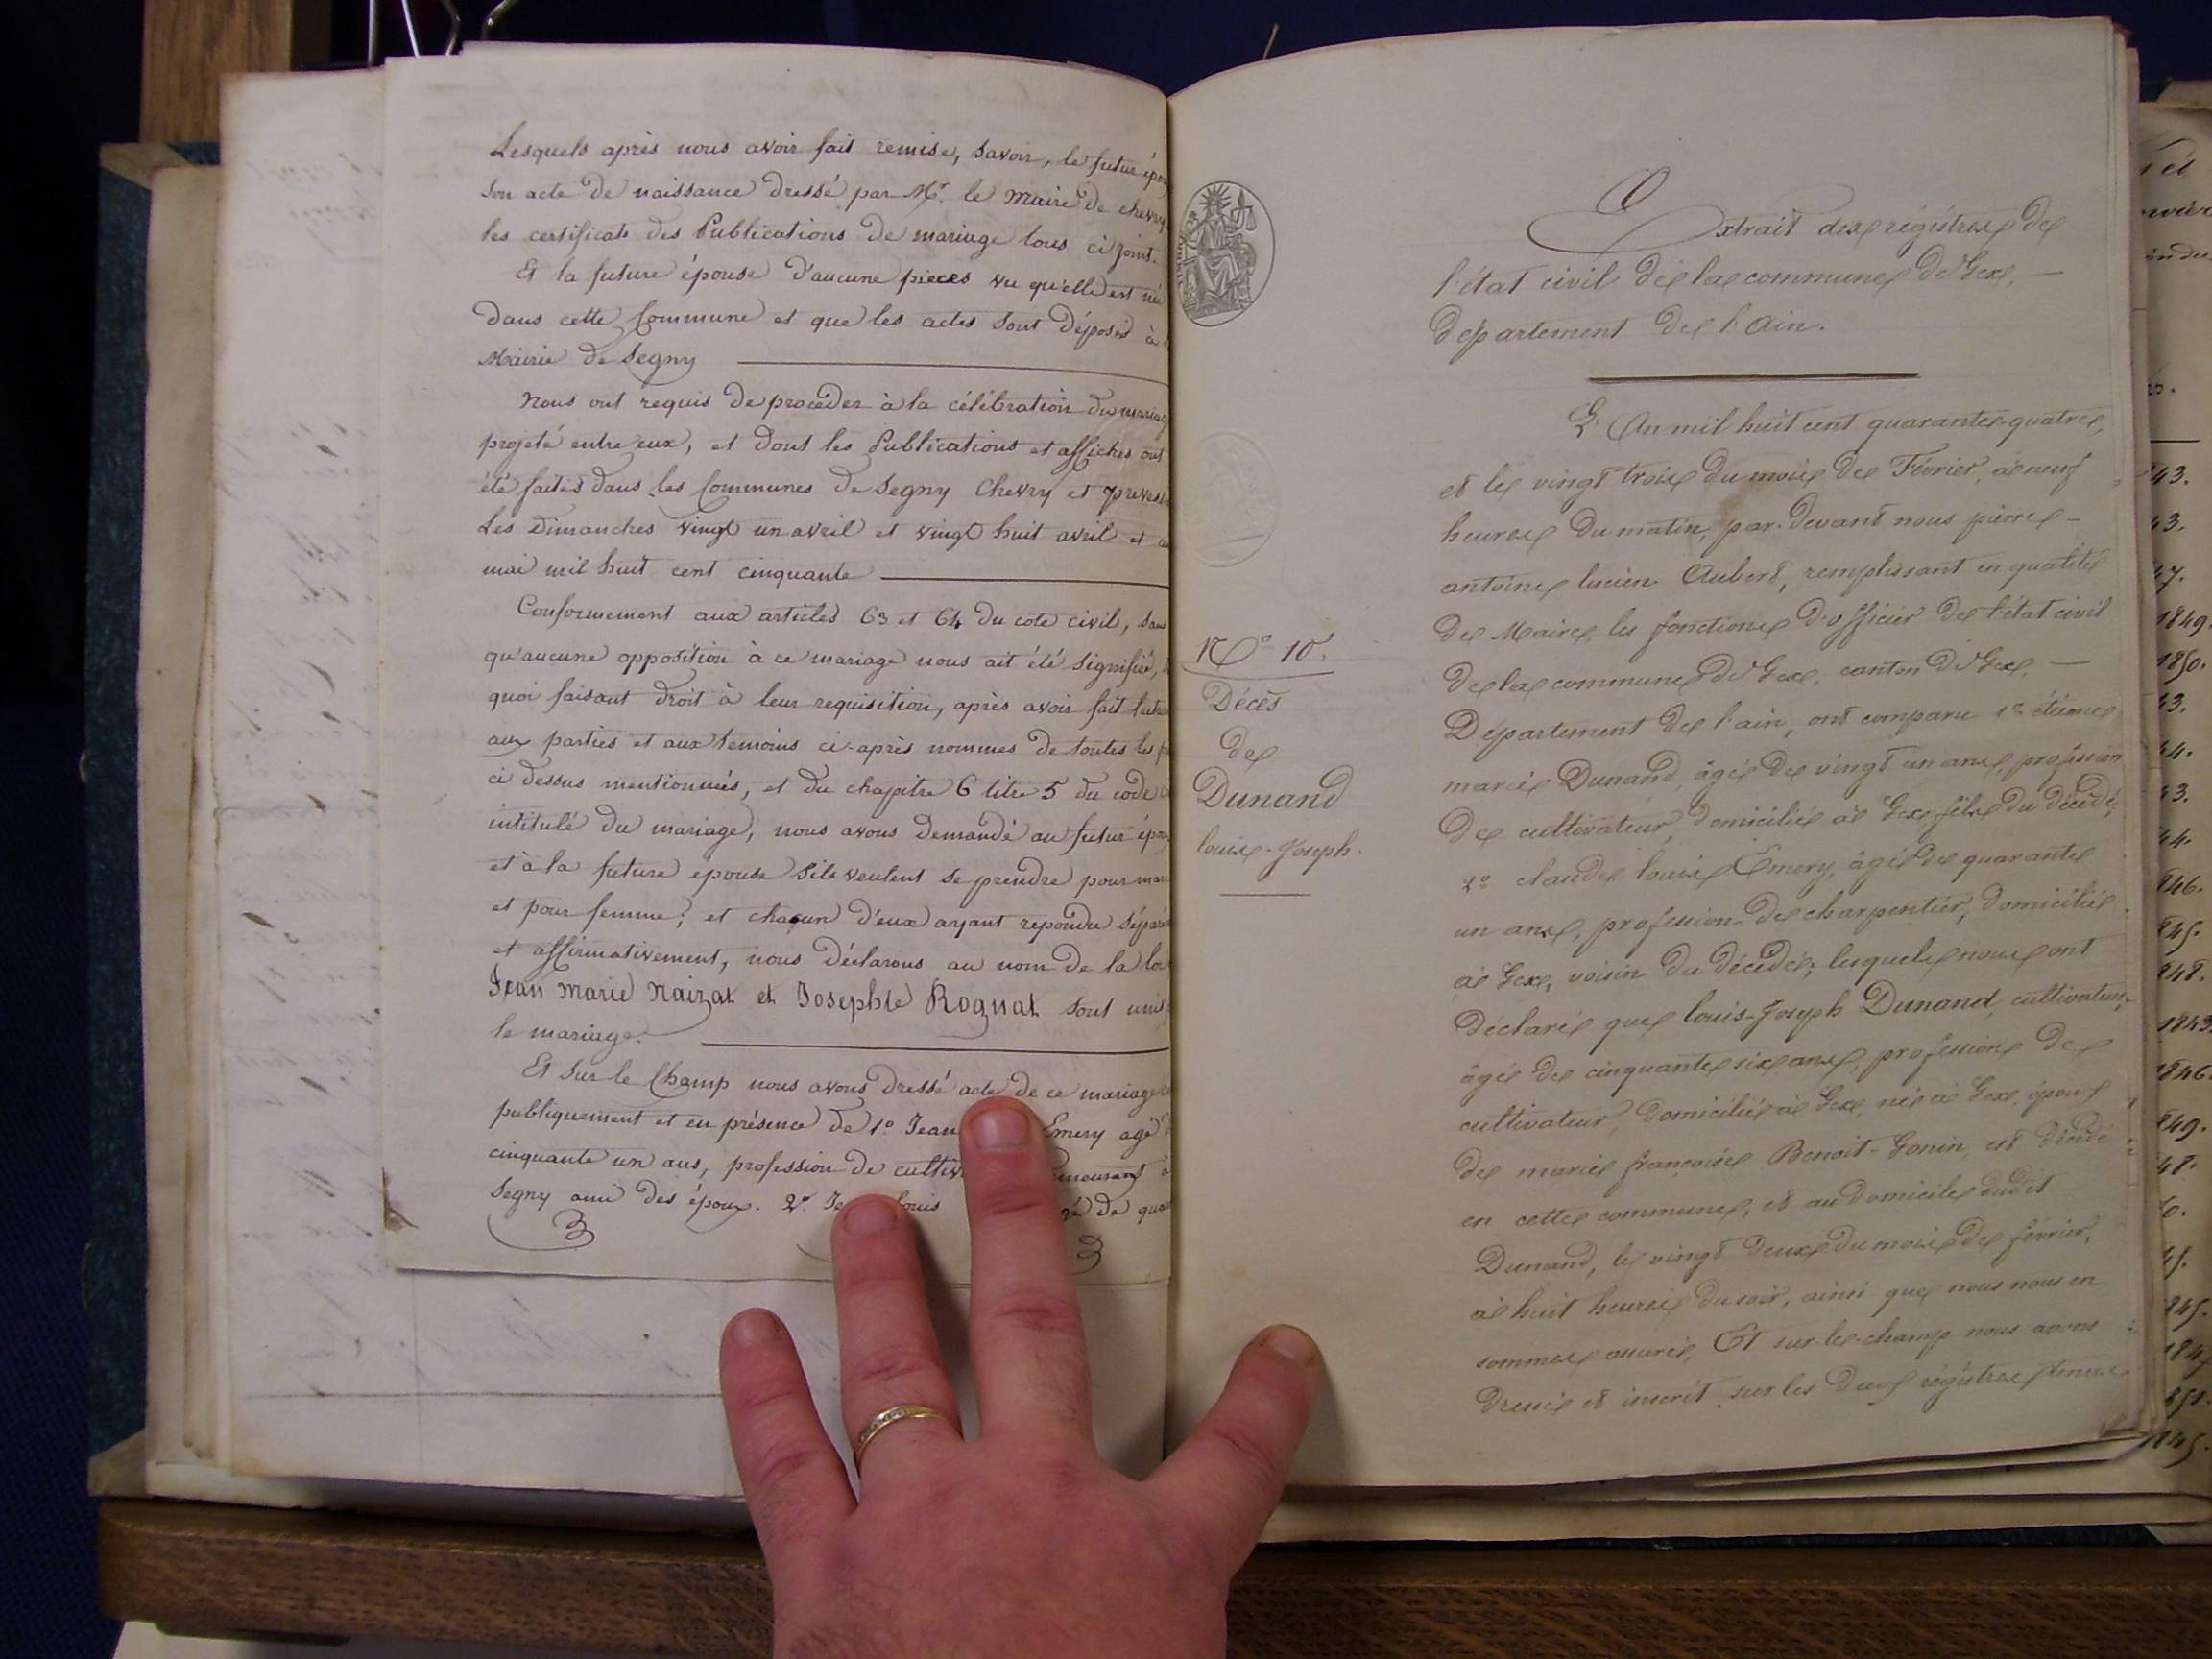 Lesquels après nous avoir fait remise, savoir, le futur épou
son acte de naissance dressé par Mr. le Maire de chevry
les certificats des Publications de mariage tous ci joint.
Et la future épouse d'aucune pieces vu qu'elle est née
dans cette Commune et que les actes sont déposés à
Mairie de Segny
Nous ont requis de proceder à la célébration du mariag
projeté entre eux, et dont les Publications et affiches ont
été faites dans les Communes de Segny Chevry et
Les Dimanches vingt un avril et vingt huit avril et
mai mil huit cent cinquante
Conformement aux articles 63 et 64 du cote civil, sans
qu'aucune opposition à ce mariage nous ait été signifiée,
quoi faisant droit à leur requisition, après avoir fait lectu
aux parties et aux temoins ci-après nommés de toutes les
ci dessus mentionnées, et du chapitre 6 titre 5 du code
intitulé du mariage, nous avons demandé au futur épou
et à la future epouse s'ils veulent se prendre pour mar
et pour femme; et chaqun d'eux ayant repondu séparé
et affirmativement, nous déclarons au nom de la loi
Jean Marie Naizat et Josephte Rognat sont unis
le mariage.
Et sur le Champ nous avons dressé acte de ce mariage
publiquement et en présence de 1º Jean Emery agé
cinquante un ans, profession de cultiv meurant à
Segny ami des époux. 2º. Je Louis gé de qua
Extrait des régistres de
l'état civil de la commune de Gex,
département de l'Ain.
L'An mil huit cent quarante-quatre,
et le vingt trois du mois de Février, à neuf
heures du matin, par-devant nous pierre
antoine lucien Aubert, remplissant en qualité
de Maire, les fonctions d'officier de l'état civil
de la commune de Gex, canton de Gex,
Département de l'ain, ont comparu 1º étienne
marie Dunand, âgé de vingt un ans, profession
de cultivateur, domicilié à Gex, fils du décédé;
2º claude louis Emery, âgé de quarante
un ans, profession de charpentier, domicilié
à Gex, voisin du décédé; lesquels nous ont
déclaré que louis-Joseph Dunand, cultivateur,
âgé de cinquante six ans, profession de
cultivateur, domicilié à Gex, né à Gex, époux
de marie françoise Benoit-Gonin, est décédé
en cette commune, et au domicile dudit
Dunand, le vingt deux du mois de février,
à huit heures du soir, ainsi que nous nous en
sommes assuré, Et sur-le-champ nous avons
dressé et inscrit sur les deux régistres tenus
Nº 10.
Décès
de
Dunand
louis-Joseph.
43.
1849.
1850.
1843
1846.